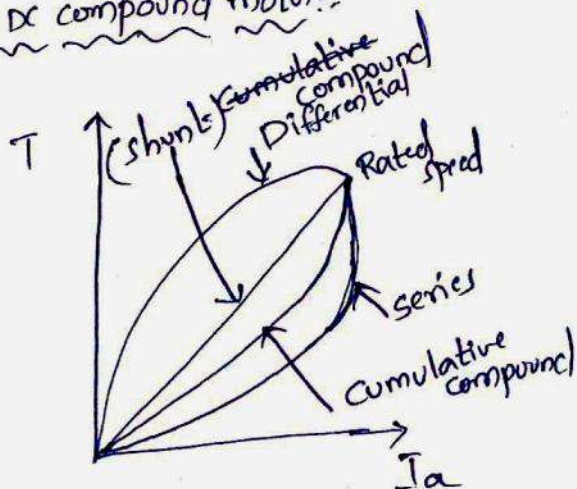 DC compound motor:-
(shunt) Cumulative
compound
Differential
T
Rated
speed
series
cumulative
compound
Ia